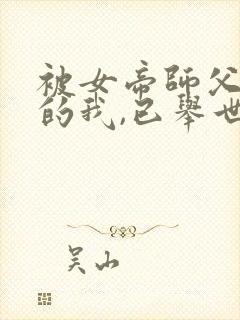 被女帝師父
的我,已舉世
吳山